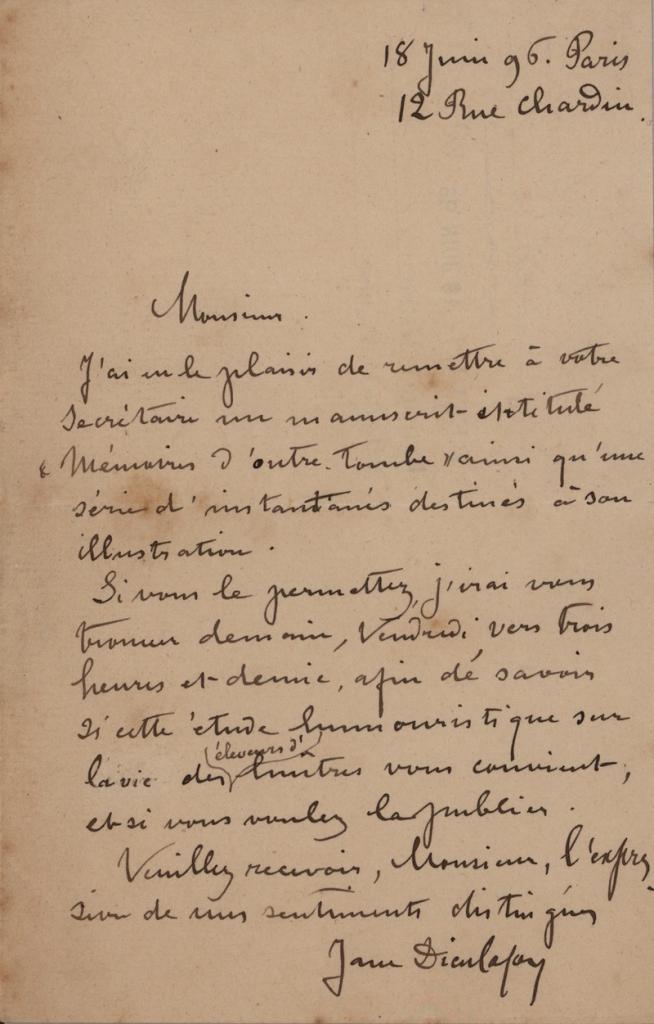 18 Juin 96. Paris
12 Rue Chardin.
Monsieur.
J'ai eu le plaisir de remettre à votre
secrétaire un manuscrit intitulé
« Mémoires d'outre-tombe » ainsi qu'une
série d'instantanés destinés à son
illustration.
Si vous le permettez, j'irai vous
trouver demain, Vendredi, vers trois
heures et demie, afin de savoir
si cette étude humouristique sur
(éleveurs d')
la vie des huitres vous convient,
et si vous voulez la publier.
Veuillez recevoir, Monsieur, l'expres-
sion de mes sentiments distingués
Jane Dieulafoy